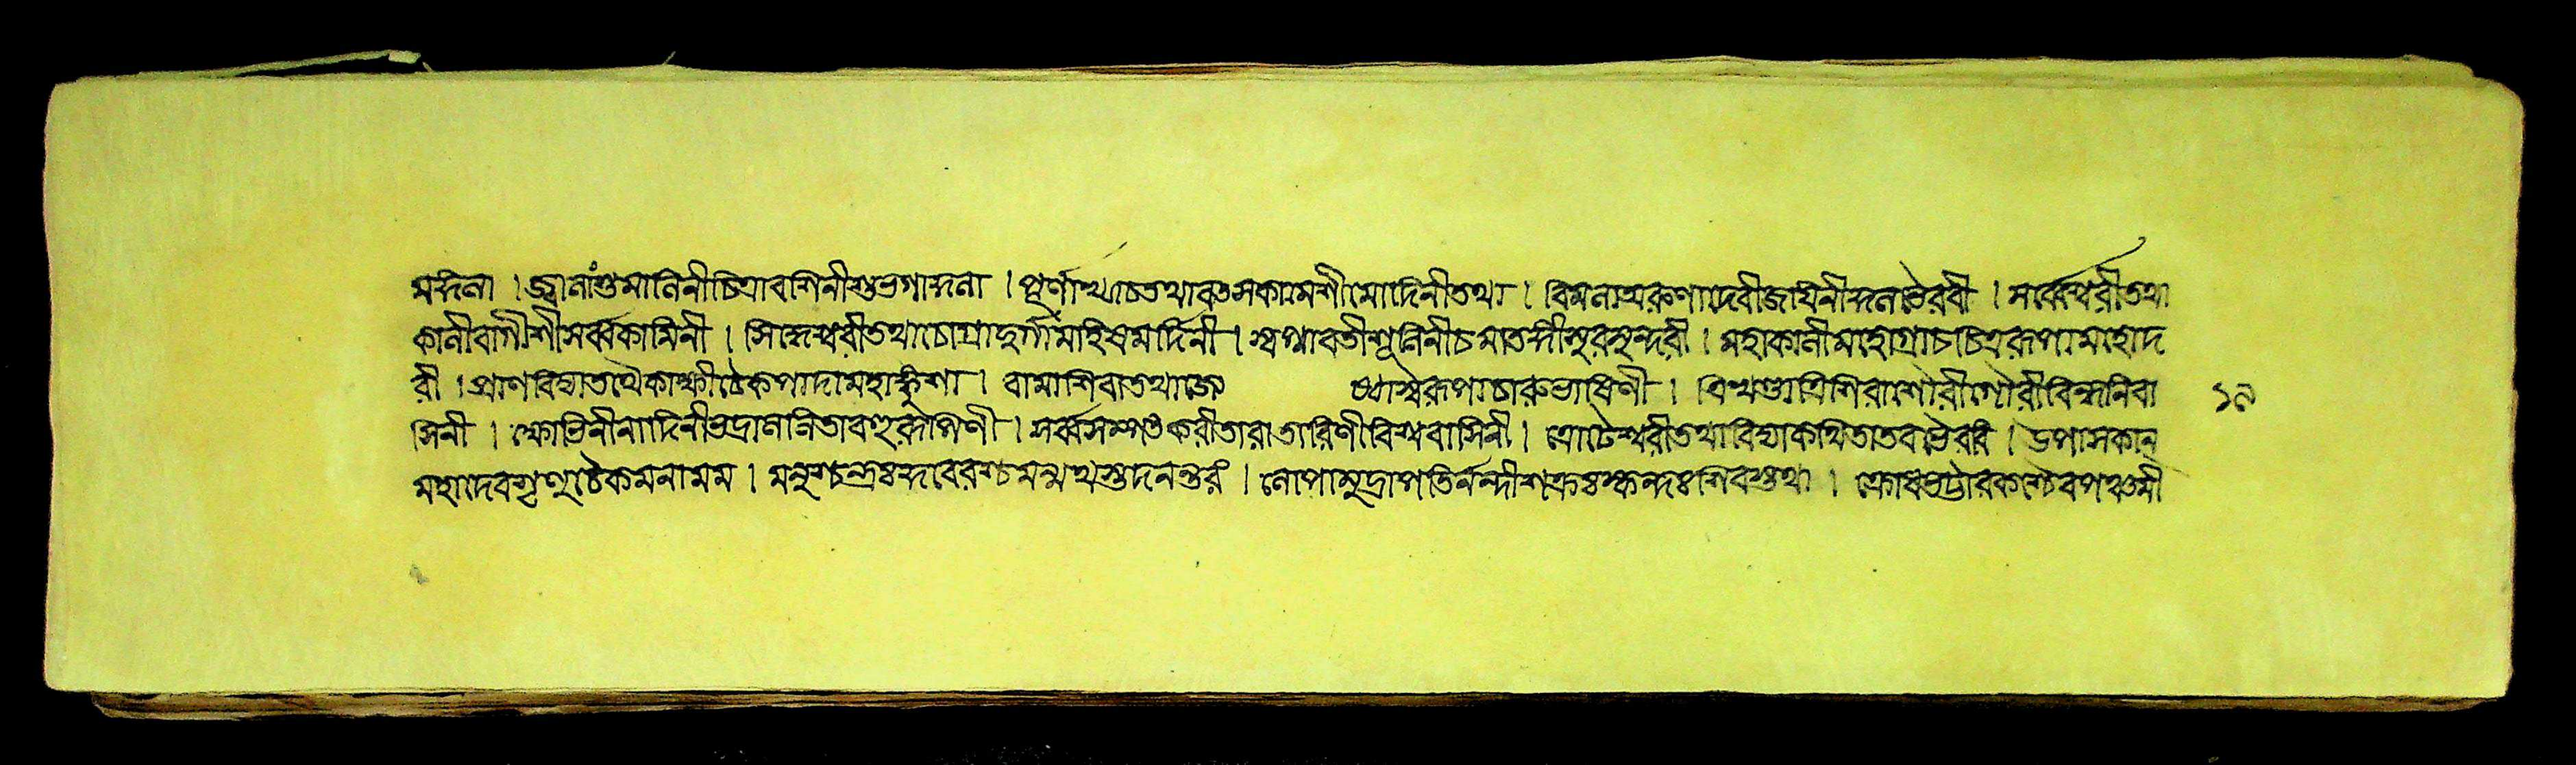 মঙ্গলা । জ্বালাংশুমালিনীচিত্রাবশিনীশুভগাঙ্গনা । পূর্ণাখ্যাচতথাবতুসকামেশীমোদিনীতথা । বিমলাঅরুণাদেবীজায়িনীঙ্গনাভৈরবী । সর্ব্বেশ্বরীতথা
কালীবাগীশীসর্ব্বকামিনী । সিদ্ধেশ্বরীতথাচোগ্রাদুর্গামহিষমর্দ্দিনী । স্বপ্নাবতীশূলিনীচমাতঙ্গীসুরসুন্দরী । মহাকালীমাহোগ্রাচচিত্ররূপামহোদ
রী । প্রাণবিদ্যাতথৈকাক্ষীচৈকপাদামহাঙ্কুশা । বামাশিবাতথাজ্যে ধ্যাস্বরূপাচারুভাষিণী । ত্রিখণ্ডাত্রিশিরাশৌরীগৌরীবিন্ধ্যনিবা ১৯
সিনী । ক্ষোভিনীনাদিনীভদ্রাললিতাবহুরূপিণী । সর্ব্বসম্পতকরীতারাতারিণীবিশ্ববাসিনী । ত্রোটেশ্বরীতথাবিদ্যাকথিতাতবভৈরবি । উপাসকান্
মহাদেবশৃণুচৈকমনামম । মনুশ্চন্দ্রঃকুবেরশ্চমন্মথস্তুদনন্তরং । লোপামুদ্রাপতির্নন্দীশক্রঃস্কন্দঃশিবস্তথা । ক্রোধভট্টারকশ্চৈবপঞ্চমী